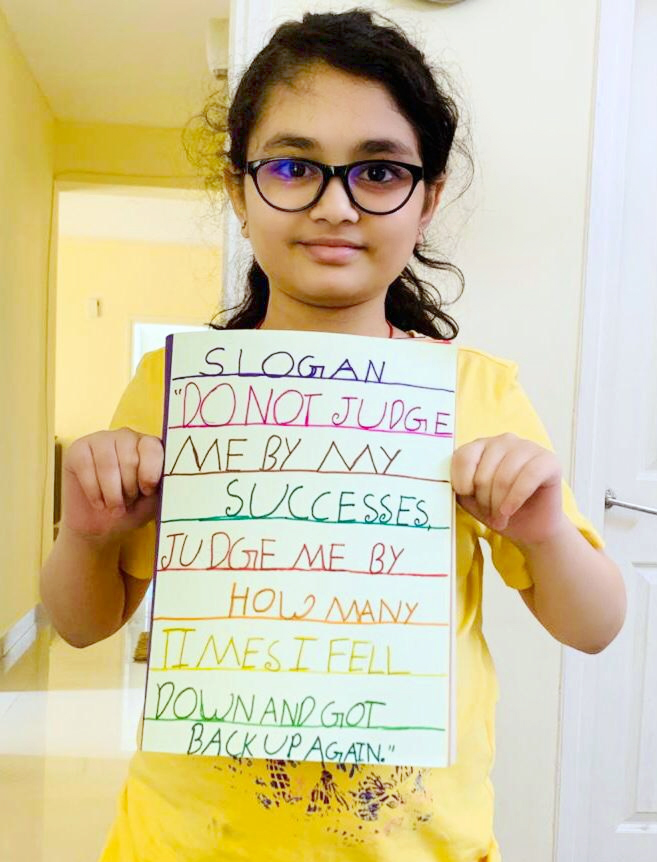 SLOGAN
"DO NOT JUDGE
ME BY MY
SUCCESSES,
JUDGE ME BY
HOW MANY
TIMES I FELL
DOWN AND GOT
BACK UP AGAIN."